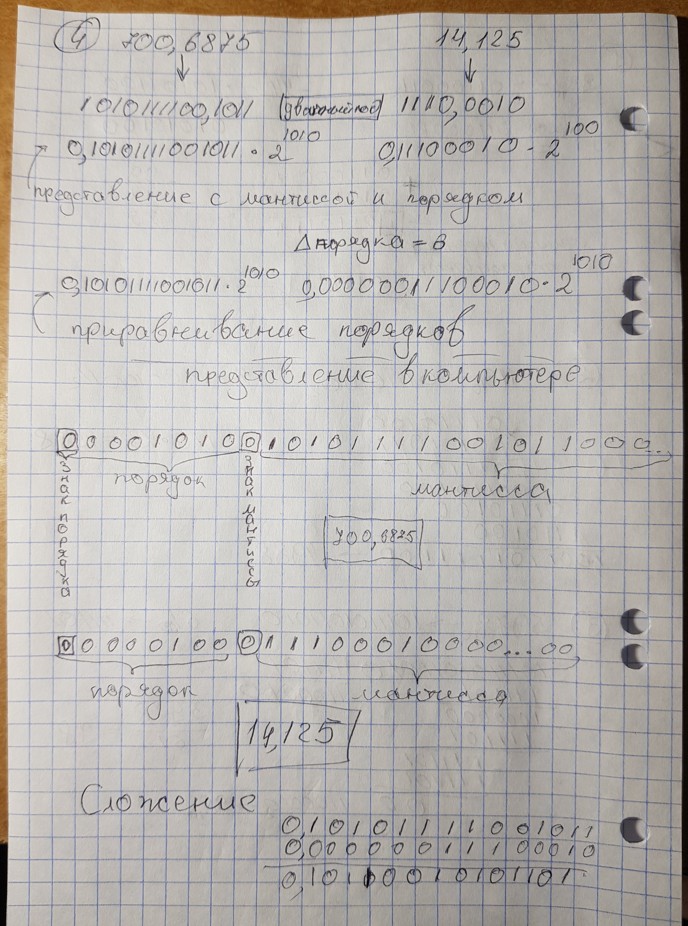 4 700,6875 14,125
1010111100,1011 (двоичный код) 1110,0010
0,10101111001011 · 2^1010 0,11100010 · 2^100
представление с мантиссой и порядком
Δ порядка = 6
0,10101111001011 · 2^1010 0,00000011100010 · 2^1010
приравнивание порядков
представление в компьютере
0 0 0 0 1 0 1 0 0 1 0 1 0 1 1 1 1 0 0 1 0 1 1 0 0 0..
порядок мантисса
знак порядка
знак мантиссы
700,6875
0 0 0 0 0 1 0 0 0 1 1 1 0 0 0 1 0 0 0 0 ... 0 0
порядок мантисса
14,125
Сложение
0,10101111001011
0,00000011100010
0,10110010101101